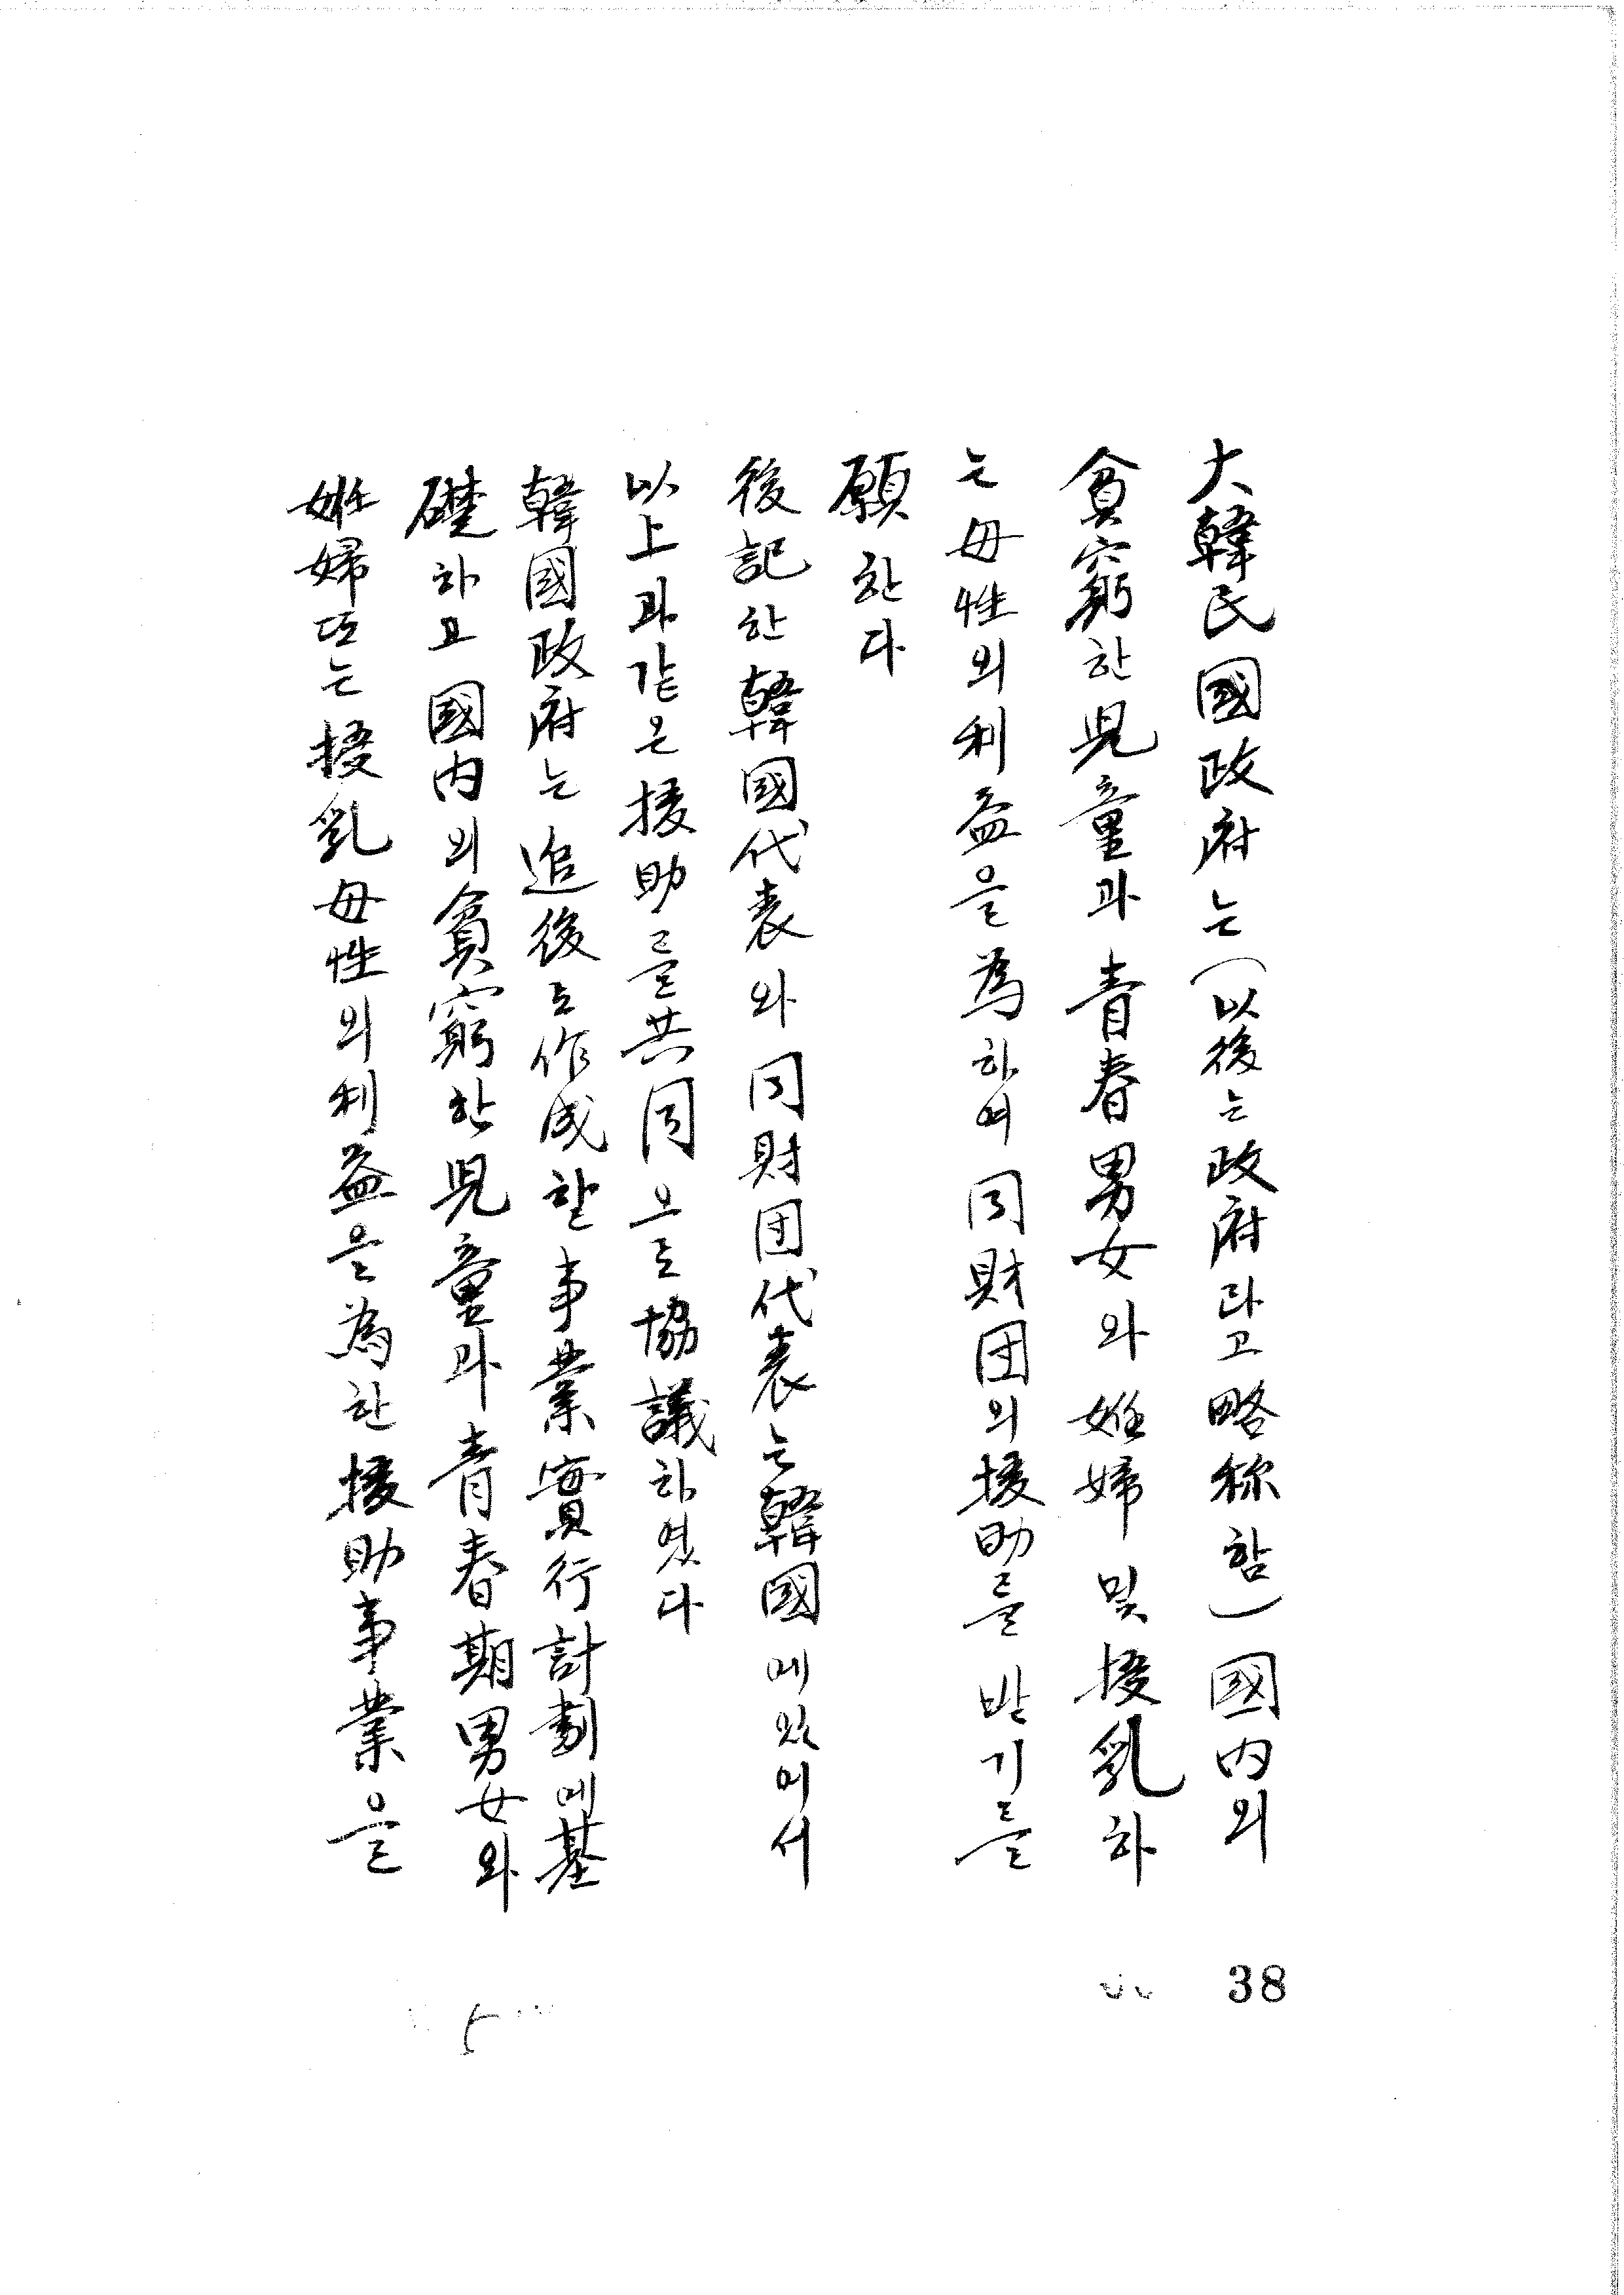 大韓民國政府는(以後는政府라고略称함)國内의
貧窮한兒童과青春男女와姙婦및授乳하
는母性의利益을為하여同財団의援助를받기를
願한다
後記한韓國代表와同財団代表는韓國에있어서
以上과같은援助를共同으로協議하였다
韓國政府는追後로作成할事業實行計劃에基
礎하고國内의貧窮한兒童과青春期男女와
姙婦또는授乳母性의利益을為한援助事業을
38